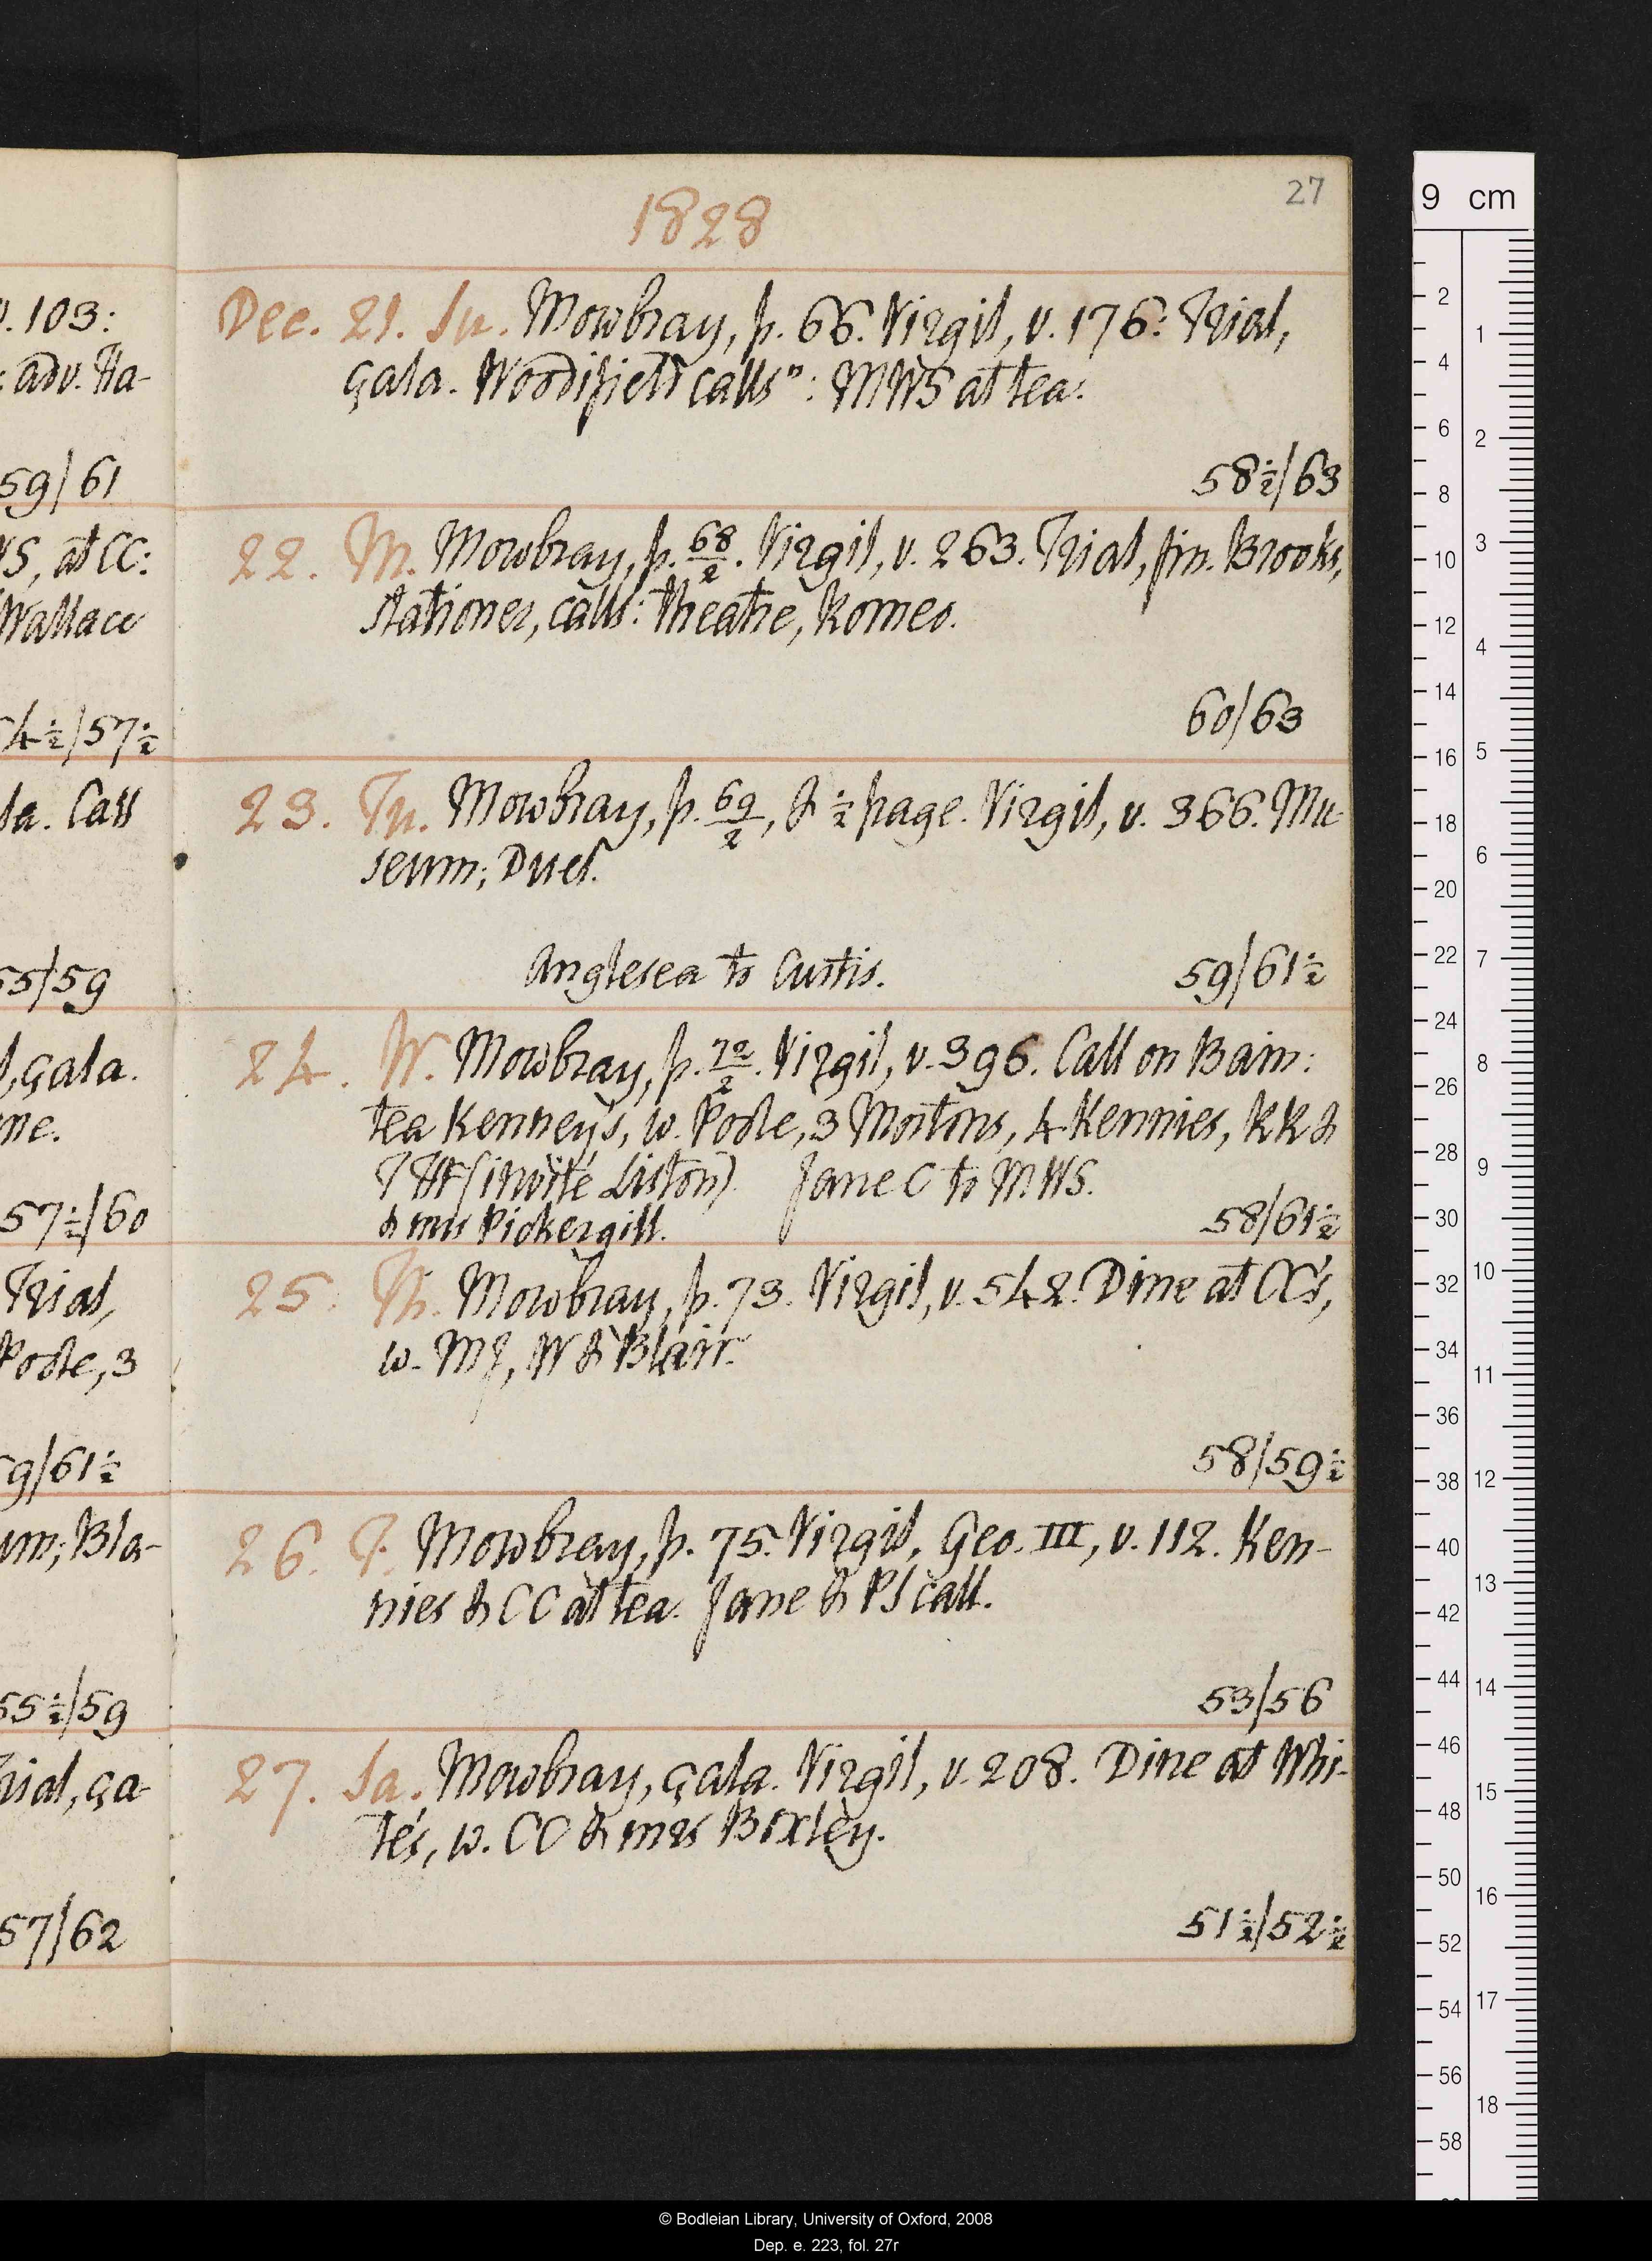 27
1828
v. 103:
; adv. Ha-
59/61
WS, at CC:
Wallace
54½/57½
la. Call
55/59
l, çala.
me.
57½/60
Trial,
Poole, 3
59/61½
um; Bla-
55½/59
Trial, ça-
57/62
Dec. 21. Su. Mowbray, p. 66. Virgil, v. 176: Trial,
çala. Woodifield calls": MWS at tea.
58½/63
22. M. Mowbray, p. 68/2. Virgil, v. 263. Trial, fin. Brooks,
stationer, calls: theatre, Romeo.
60/63
23. Tu. Mowbray, p. 69/2, & ½ page. Virgil, v. 366. Mu-
seum; Duel.
Anglesea to Curtis. 59/61½
24. W. Mowbray, p. 72/2. Virgil, v. 396. Call on Bain:
tea Kenney's, w. Poole, 3 Mortons, 4 Kennies, RR &
(invité Liston) Jane C to MWS.
& mrs Pickergill. 58/61½
25. Th. Mowbray, p. 73. Virgil, v. 542. Dine at CC's,
w. MJ, W & Blair.
58/59½
26. F. Mowbray, p. 75. Virgil, Geo. III, v. 112. Ken-
nies & CC at tea. Jane & PS call.
53/56
27. Sa. Mowbray, çala. Virgil, v. 208. Dine at Whi-
te's, w. CC & mrs Boxley.
51½/52½
9 cm
2
4
6
8
10
12
14
16
18
20
22
24
26
28
30
32
34
36
38
40
42
44
46
48
50
52
54
56
58
1
2
3
4
5
6
7
8
9
10
11
12
13
14
15
16
17
18
© Bodleian Library, University of Oxford, 2008
Dep. e. 223, fol. 27r